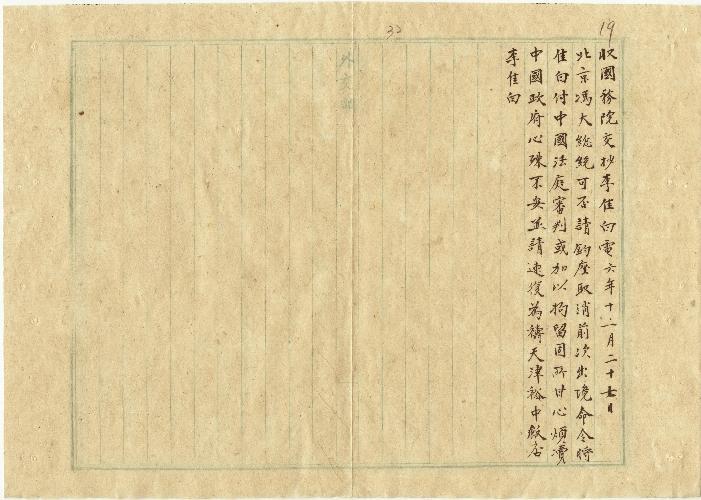 19
32
收國務院交抄李佳白電六年十二月二十七日
北京馮大總統可否請鈞座取消前次出境命令將
佳白付中國法庭審判或加以拘留固所甘心煩瀆
中國政府心殊不安並請速復為禱天津裕中飯店
李佳白